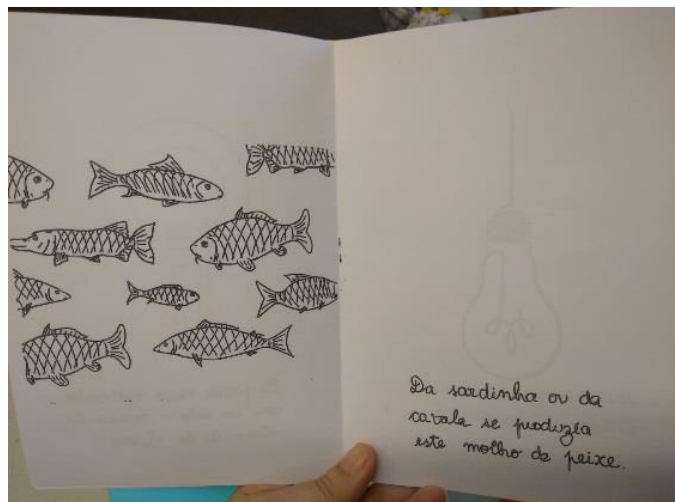 Da sardinha ou da
cavala se produzia
este molho de peixe.